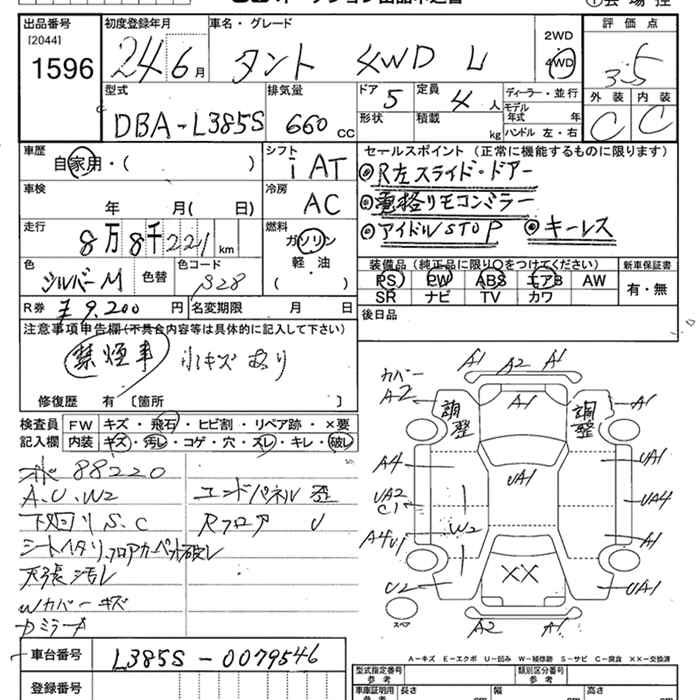 出品番号 初度登録年月 車名・グレード 2WD 評価点
[2044] 1596 24 6月 タント 4WD L 4WD 3.5
型式 排気量 ドア 5 定員 4人 ディーラー・並行 外装 内装
DBA-L385S 660cc 形状 積載 kg モデル年式 年 C C
ハンドル 左・右
車歴 自家用・( ) シフト iAT セールスポイント (正常に機能するものに限ります)
◎R左スライド・ドアー
車検 年 月( 日) 冷房 AC ◎電格リモコンミラー
走行 8万8千221km 燃料 ガソリン ◎アイドルSTOP ◎キーレス
軽・油
色 シルバーM 色替 色コード S28 装備品 (純正品に限り○をつけてください) 新車保証書
PS PW ABS エアB AW 有・無
SR ナビ TV カワ
R券 ¥9,200円 名変期限 月 日 後日品
注意事項申告欄(不具合内容等は具体的に記入して下さい)
禁煙車 小キズあり
修復歴 有 〔箇所 〕
検査員 FW キズ・飛石・ヒビ割・リペア跡・×要
記入欄 内装 キズ・汚レ・コゲ・穴・スレ・キレ・破レ
88220
A.U.W2 エンドパネル 歪
下廻りS.C Rフロア U
シートヘタリ、フロアカーペット破レ
天張汚レ
Wカバーキズ
ミラーA
カバー A2 A1 A2 A1
調整 A1 調整 A1
A4 UA1 UA1
UA2 C1 W2 UA4
A4U1 A1
U2 XX UA1
スペア A2 A1
A-キズ E-エクボ U-凹み W-補修跡 S-サビ C-腐食 XX-交換済
車台番号 L385S-0079546 型式指定番号 参考 類別区分番号 参考
登録番号 車庫証明用 参考 長さ cm 幅 cm 高さ cm